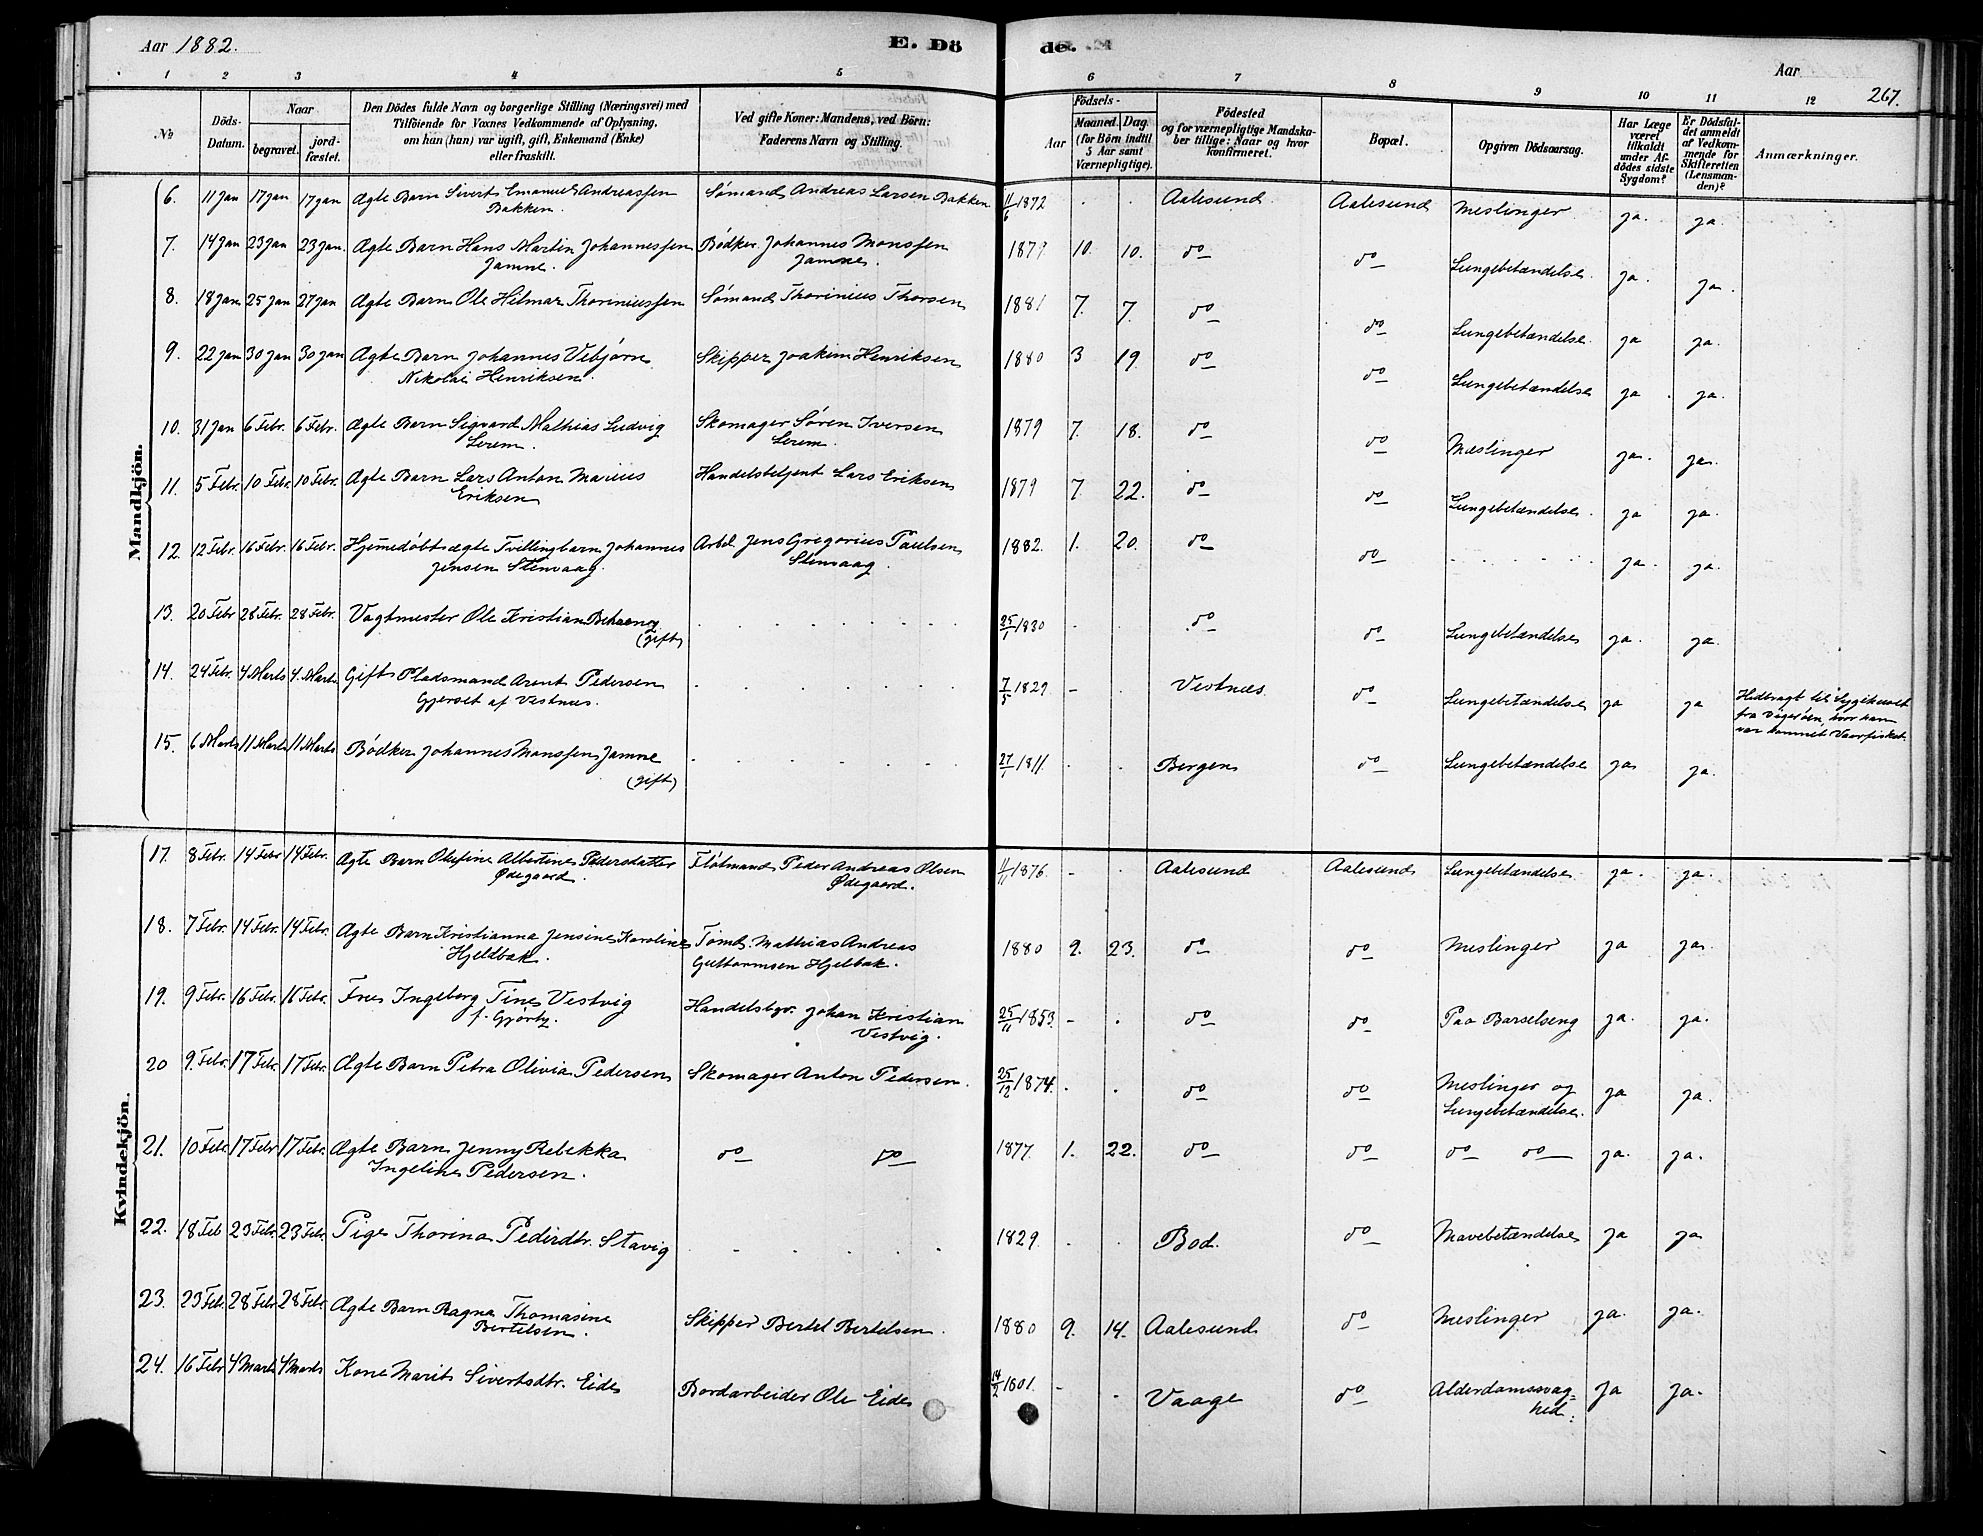 Aar 1882.
E. Dö
de.
Aar
267.
1 2 3 4 5 6 7 8 9 10 11 12
№
Döds-Datum.
Naar
begravet.
jordfæstet.
Den Dödes fulde Navn og borgerlige Stilling (Næringsvei) med
Tilföiende for Voxnes Vedkommende af Oplysning,
om hün (han) var ugift, gift, Enkemand (Enke)
eller fraskilt.
Ved gifte Koner: Mandens, ved Börn:
Faderens Navn og Stilling.
Födsels-
Aar
Maaned. Dag.
(for Börn indtil
5 Aar samt
Værnepligtige).
Födested
og for værnepligtige Mandska-
ber tillige: Naar og hvor
konfirmeret.
Bopæl.
Opgiven Dödsaarsag.
Har Læge
været
tilkaldt
under Af-
dödes sidste
Sygdom?
Er Dödsfal-
det anmeldt
af Vedkom-
mende for
Skifteretten
(Lensman-
den)?
Anmærkninger.
Mandkjön.
6. 11 Jan 17 Jan 17 Jan Ægte Barn Sivert Emanuel Andreassen Sømand Andreas Larsen Bakken 11/6 1872 Aalesund Aalesund Meslinger ja. ja.
Bakken.
7. 14 Jan 23 Jan 23 Jan. Ægte Barn Hans Martin Johannessen Bødker Johannes Monssen 1879 10. 10. do do Lungebetændelse. ja. ja.
Jamne. Jamne.
8. 18 Jan 25 Jan 27 Jan Ægte Barn Ole Hilmar Thoriniussen Sømand Thorinius Thorsen 1881 7. 7. do do Lungebetændelse. ja ja.
9. 22 Jan 30 Jan 30 Jan Ægte Barn Johannes Vebjørn Skipper Joakim Henriksen 1880 3 19. do do Lungebetændelse ja. ja.
Nikolai Henriksen.
10. 31 Jan 6 Febr. 6 Febr. Ægte Barn Sigvard Mathias Ludvig Skomager Søren Iversen 1879 7. 18. do do Meslinger ja. ja.
Lerem. Lerem.
11. 5 Febr. 10 Febr. 10 Febr. Ægte Barn Lars Anton Marius Handelsbetjent Lars Eriksen 1879 7. 22. do do Lungebetændelse. ja ja.
Eriksen
12. 12 Febr. 16 Febr. 16 Febr. Hjemedøbt ægte Tvillingbarn Johannes Arbd. Jens Gregorius Paulsen 1882. 1. 20. do do ja. ja.
Jensen Stenvaag. Stenvaag.
13. 20 Febr 28 Febr. 28 Febr. Vagtmester Ole Kristian 25/1 1830 do do Lungebetændelse ja. ja.
(gift)
14. 24 Febr. 4 Marts 4. Marts. Gift Pladsmand Arent Pedersen 7/5 1829. Vestnæs. do Lungebetændelse ja ja Hidbragt til Sygehuset
Gjerset af Vestnes. fra Vigerøen, hvor han
var kommet Vaarfisket.
15. 6 Marts 11 Marts 11 Marts Bødker Johannes Monssen Jamne 27/1 1811. Bergen do Lungebetændelse ja ja.
(gift)
Kvindekjön.
17. 8 Febr. 14 Febr 14 Febr. Ægte Barn Olufine Albertine Pedersdatter Flótmand Peder Andreas Olsen 11/11 1876. Aalesund Aalesund Lungebetændelse ja. ja.
Ødegaard. Ødegaard.
18. 7 Febr. 14 Febr. 14 Febr. Ægte Barn Kristianna Jensine Karoline Tømd. Mathias Andreas 1880 9. 23. do do Meslinger ja ja.
Hjeldbak. Guttormsen Hjelbak.
19. 9 Febr. 16 Febr. 16 Febr. Frue Ingeborg Tine Vestvig Handelsbgr. Johan Kristian 25/11 1853. do do Paa Barselseng ja. ja.
f. Gjørtz. Vestvig.
20 9. Febr. 17 Febr. 17 Febr. Ægte Barn Petra Olivia Pedersen Skomager Anton Pedersen. 25/12 1874. do do Meslinger og ja ja.
Lungebetændelse.
21. 10 Febr 17 Febr 17 Febr. Ægte Barn Jenny Rebekka do do 1877. 1. 22. do do do do ja. ja.
Ingeline Pedersen.
22. 18 Feb 23 Febr. 23 Febr. Pige Thorina Pedersdtr. Stavig 1829. Bod. do Mavebetændelse ja ja
23. 23 Feb. 28 Febr 28 Febr Ægte Barn Ragna Thomasine Skipper Bertel Bertelsen. 1880 9. 14. Aalesund do Meslinger ja. ja.
Bertelsen.
24. 16 Febr 4 Marts 4 Marts Kone Marit Sivertsdtr. Eide Bordarbeider Ole Eide 14/2 1801. Vaage do Alderdomssvag= ja ja.
hed.